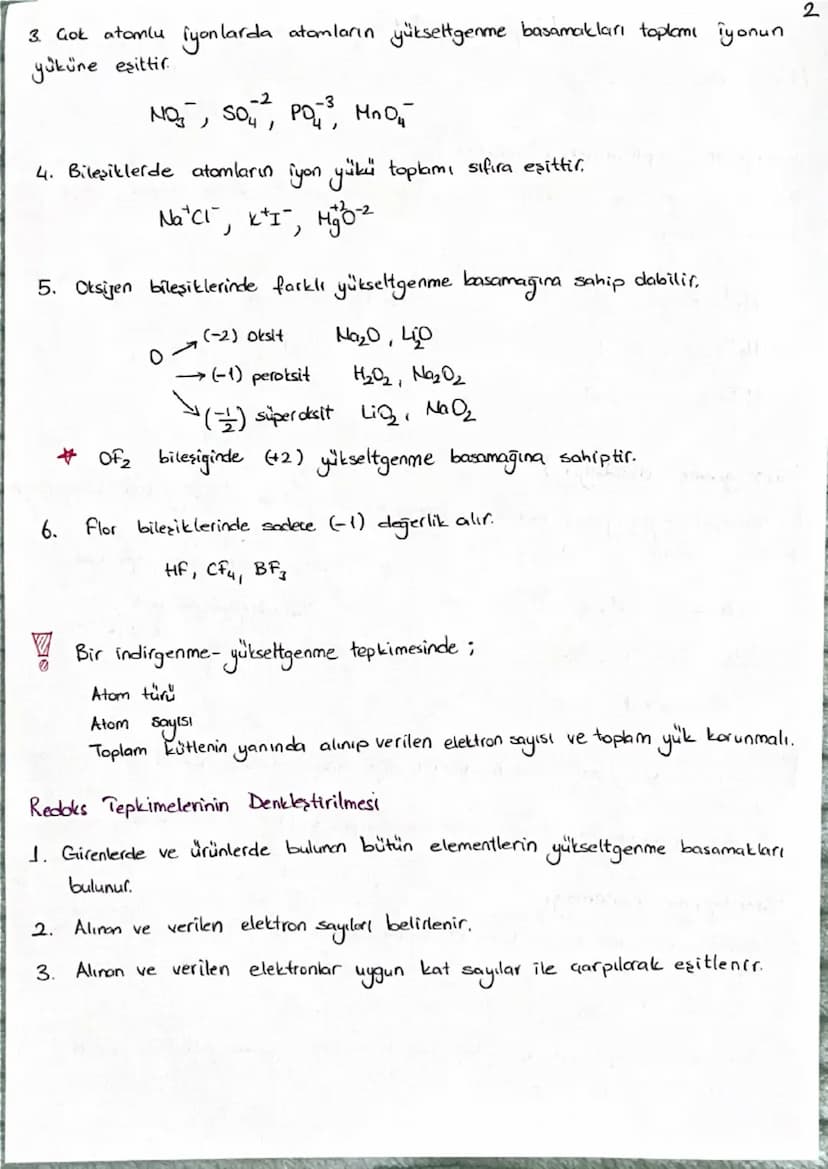 2
3. Çok atomlu iyonlarda atomların yükseltgenme basamakları toplamı iyonun
yüküne eşittir.
NO₃⁻, SO₄⁻², PO₄⁻³, MnO₄⁻
4. Bileşiklerde atomların iyon yükü toplamı sıfıra eşittir.
Na⁺Cl⁻, K⁺I⁻, Mg⁺²O⁻²
5. Oksijen bileşiklerinde farklı yükseltgenme basamağına sahip olabilir.
O → (-2) oksit Na₂O, Li₂O
→ (-1) peroksit H₂O₂, Na₂O₂
→ (-1/2) süperoksit LiO₂, NaO₂
* OF₂ bileşiğinde (+2) yükseltgenme basamağına sahiptir.
6. Flor bileşiklerinde sadece (-1) değerlik alır.
HF, CF₄, BF₃
! Bir indirgenme-yükseltgenme tepkimesinde ;
Atom türü
Atom sayısı
Toplam kütlenin yanında alınıp verilen elektron sayısı ve toplam yük korunmalı.
Redoks Tepkimelerinin Denkleştirilmesi
1. Girenlerde ve ürünlerde bulunan bütün elementlerin yükseltgenme basamakları
bulunur.
2. Alınan ve verilen elektron sayıları belirlenir.
3. Alınan ve verilen elektronlar uygun kat sayılar ile çarpılarak eşitlenir.